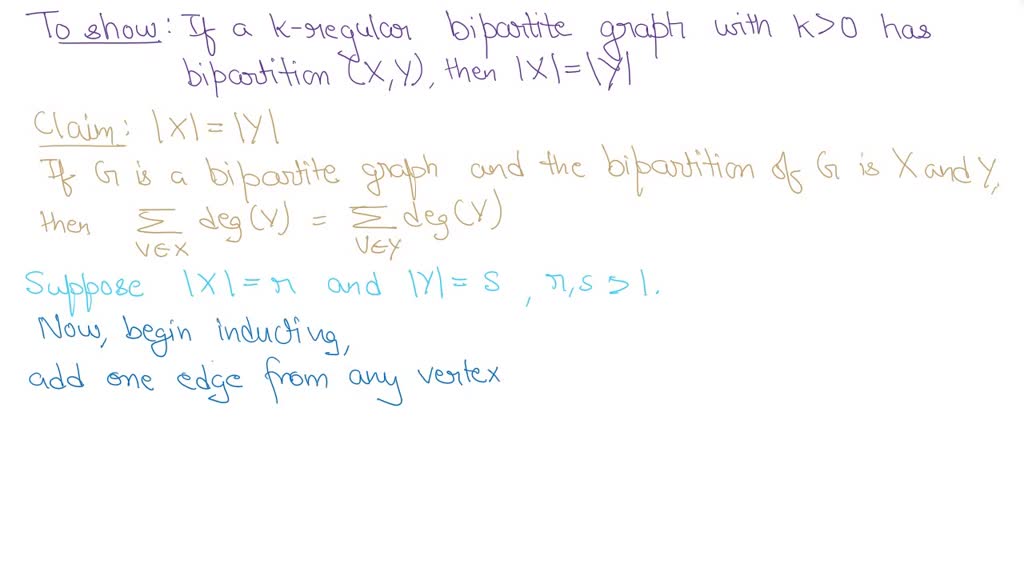 To show: If a k-regular bipartite graph with k>0 has
bipartition (X,Y), then |X|=|Y|
Claim: |X|=|Y|
If G is a bipartite graph and the bipartition of G is X and Y,
then ∑ deg(V) = ∑ deg(V)
V∈X V∈Y
Suppose |X|=r and |Y|=s, r,s>1.
Now, begin inducting,
add one edge from any vertex